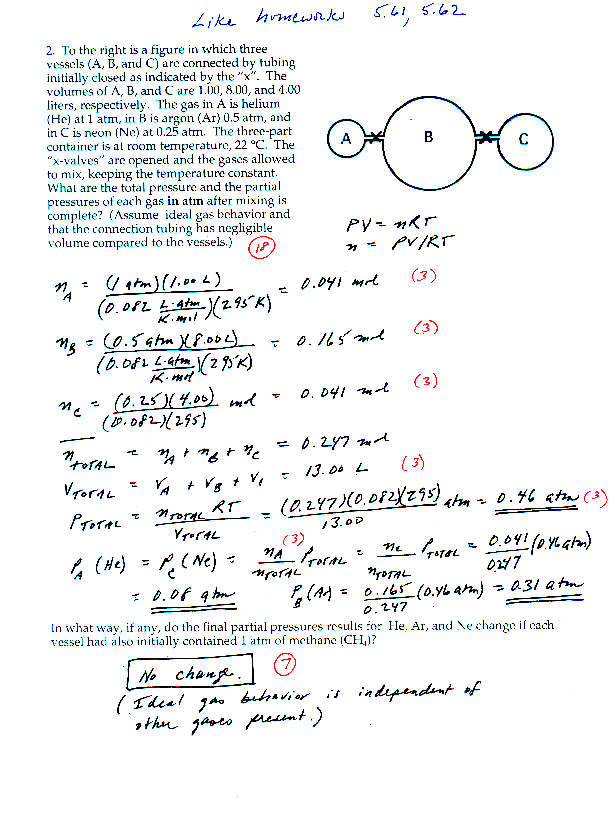 Like homeworks 5.61, 5.62
2. To the right is a figure in which three
vessels (A, B, and C) are connected by tubing
initially closed as indicated by the "x". The
volumes of A, B, and C are 1.00, 8.00, and 4.00
liters, respectively. The gas in A is helium
(He) at 1 atm, in B is argon (Ar) 0.5 atm, and
in C is neon (Ne) at 0.25 atm. The three-part
container is at room temperature, 22 °C. The
"x-valves" are opened and the gases allowed
to mix, keeping the temperature constant.
What are the total pressure and the partial
pressures of each gas in atm after mixing is
complete? (Assume ideal gas behavior and
that the connection tubing has negligible
volume compared to the vessels.) 18
A B C
PV = nRT
n = PV/RT
n_A = (1 atm)(1.00 L) / (0.082 L·atm/K·mol)(295 K) = 0.041 mol (3)
n_B = (0.5 atm)(8.00 L) / (0.082 L·atm/K·mol)(295 K) = 0.165 mol (3)
n_C = (0.25)(4.00) / (0.082)(295) mol = 0.041 mol (3)
n_TOTAL = n_A + n_B + n_C = 0.247 mol
V_TOTAL = V_A + V_B + V_C = 13.00 L (3)
P_TOTAL = n_TOTAL RT / V_TOTAL = (0.247)(0.082)(295) / 13.00 atm = 0.46 atm (3)
(3)
P_A (He) = P_C (Ne) = n_A / n_TOTAL P_TOTAL = n_C / n_TOTAL P_TOTAL = 0.041 / 0.247 (0.46 atm)
= 0.08 atm P_B (Ar) = 0.165 / 0.247 (0.46 atm) = 0.31 atm
In what way, if any, do the final partial pressures results for He, Ar, and Ne change if each
vessel had also initially contained 1 atm of methane (CH4)?
No change. 7
(Ideal gas behavior is independent of
other gases present.)